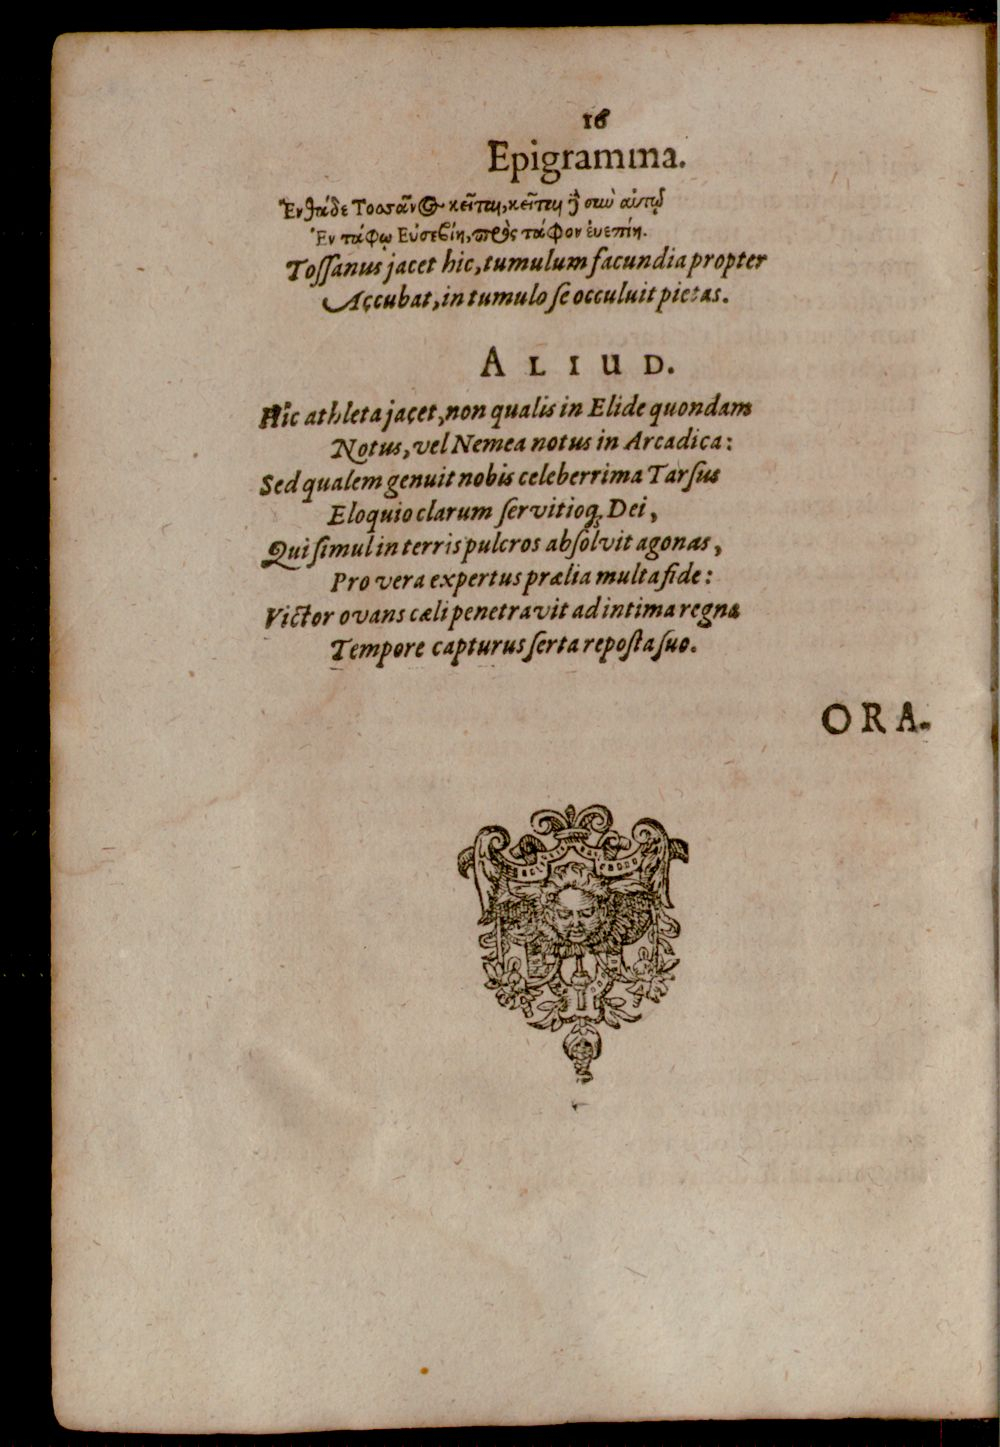 16
Epigramma.
Ἐνθάδε Τοσσᾶνος κεῖται, κεῖται δὲ σὺν αὐτῷ
Ἐν τάφῳ Εὐσεβίη, πρὸς τάφον ἐυεπίη.
Tossanus jacet hic, tumulum facundia propter
Accubat, in tumulo se occuluit pietas.
ALIUD.
Hic athleta jacet, non qualis in Elide quondam
Notus, vel Nemea notus in Arcadica:
Sed qualem genuit nobis celeberrima Tarsus
Eloquio clarum servitioq; Dei,
Qui simul in terris pulcros absolvit agonas,
Pro vera expertus prælia multa fide:
Victor ovans cæli penetravit ad intima regna
Tempore capturus serta reposta suo.
ORA-